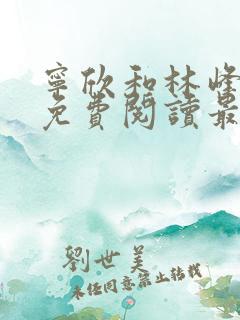 寧欣和林峰
免費閱讀最
劉世美
未經同意禁止轉載